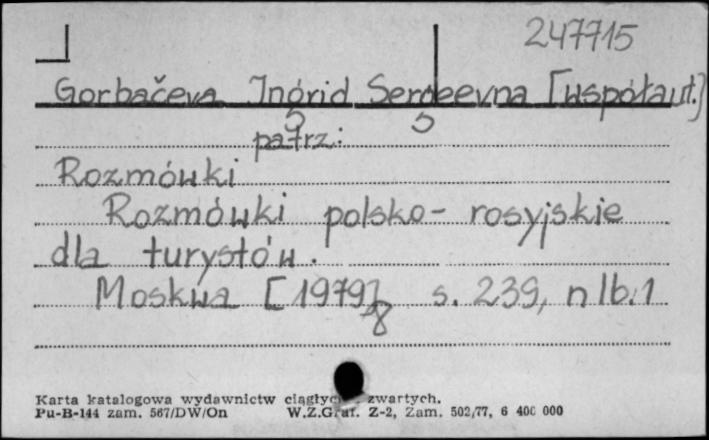 247715
Gorbačeva Ingrid Sergeevna [współaut.]
patrz:
Rozmówki
Rozmówki polsko-rosyjskie
dla turystów.
Moskwa [1979] s. 239, nlb. 1
8
Karta katalogowa wydawnictw ciągłyc zwartych.
Pu-B-144 zam. 567/DW/On W.Z.Graf. Z-2, Zam. 502/77, 6 400 000